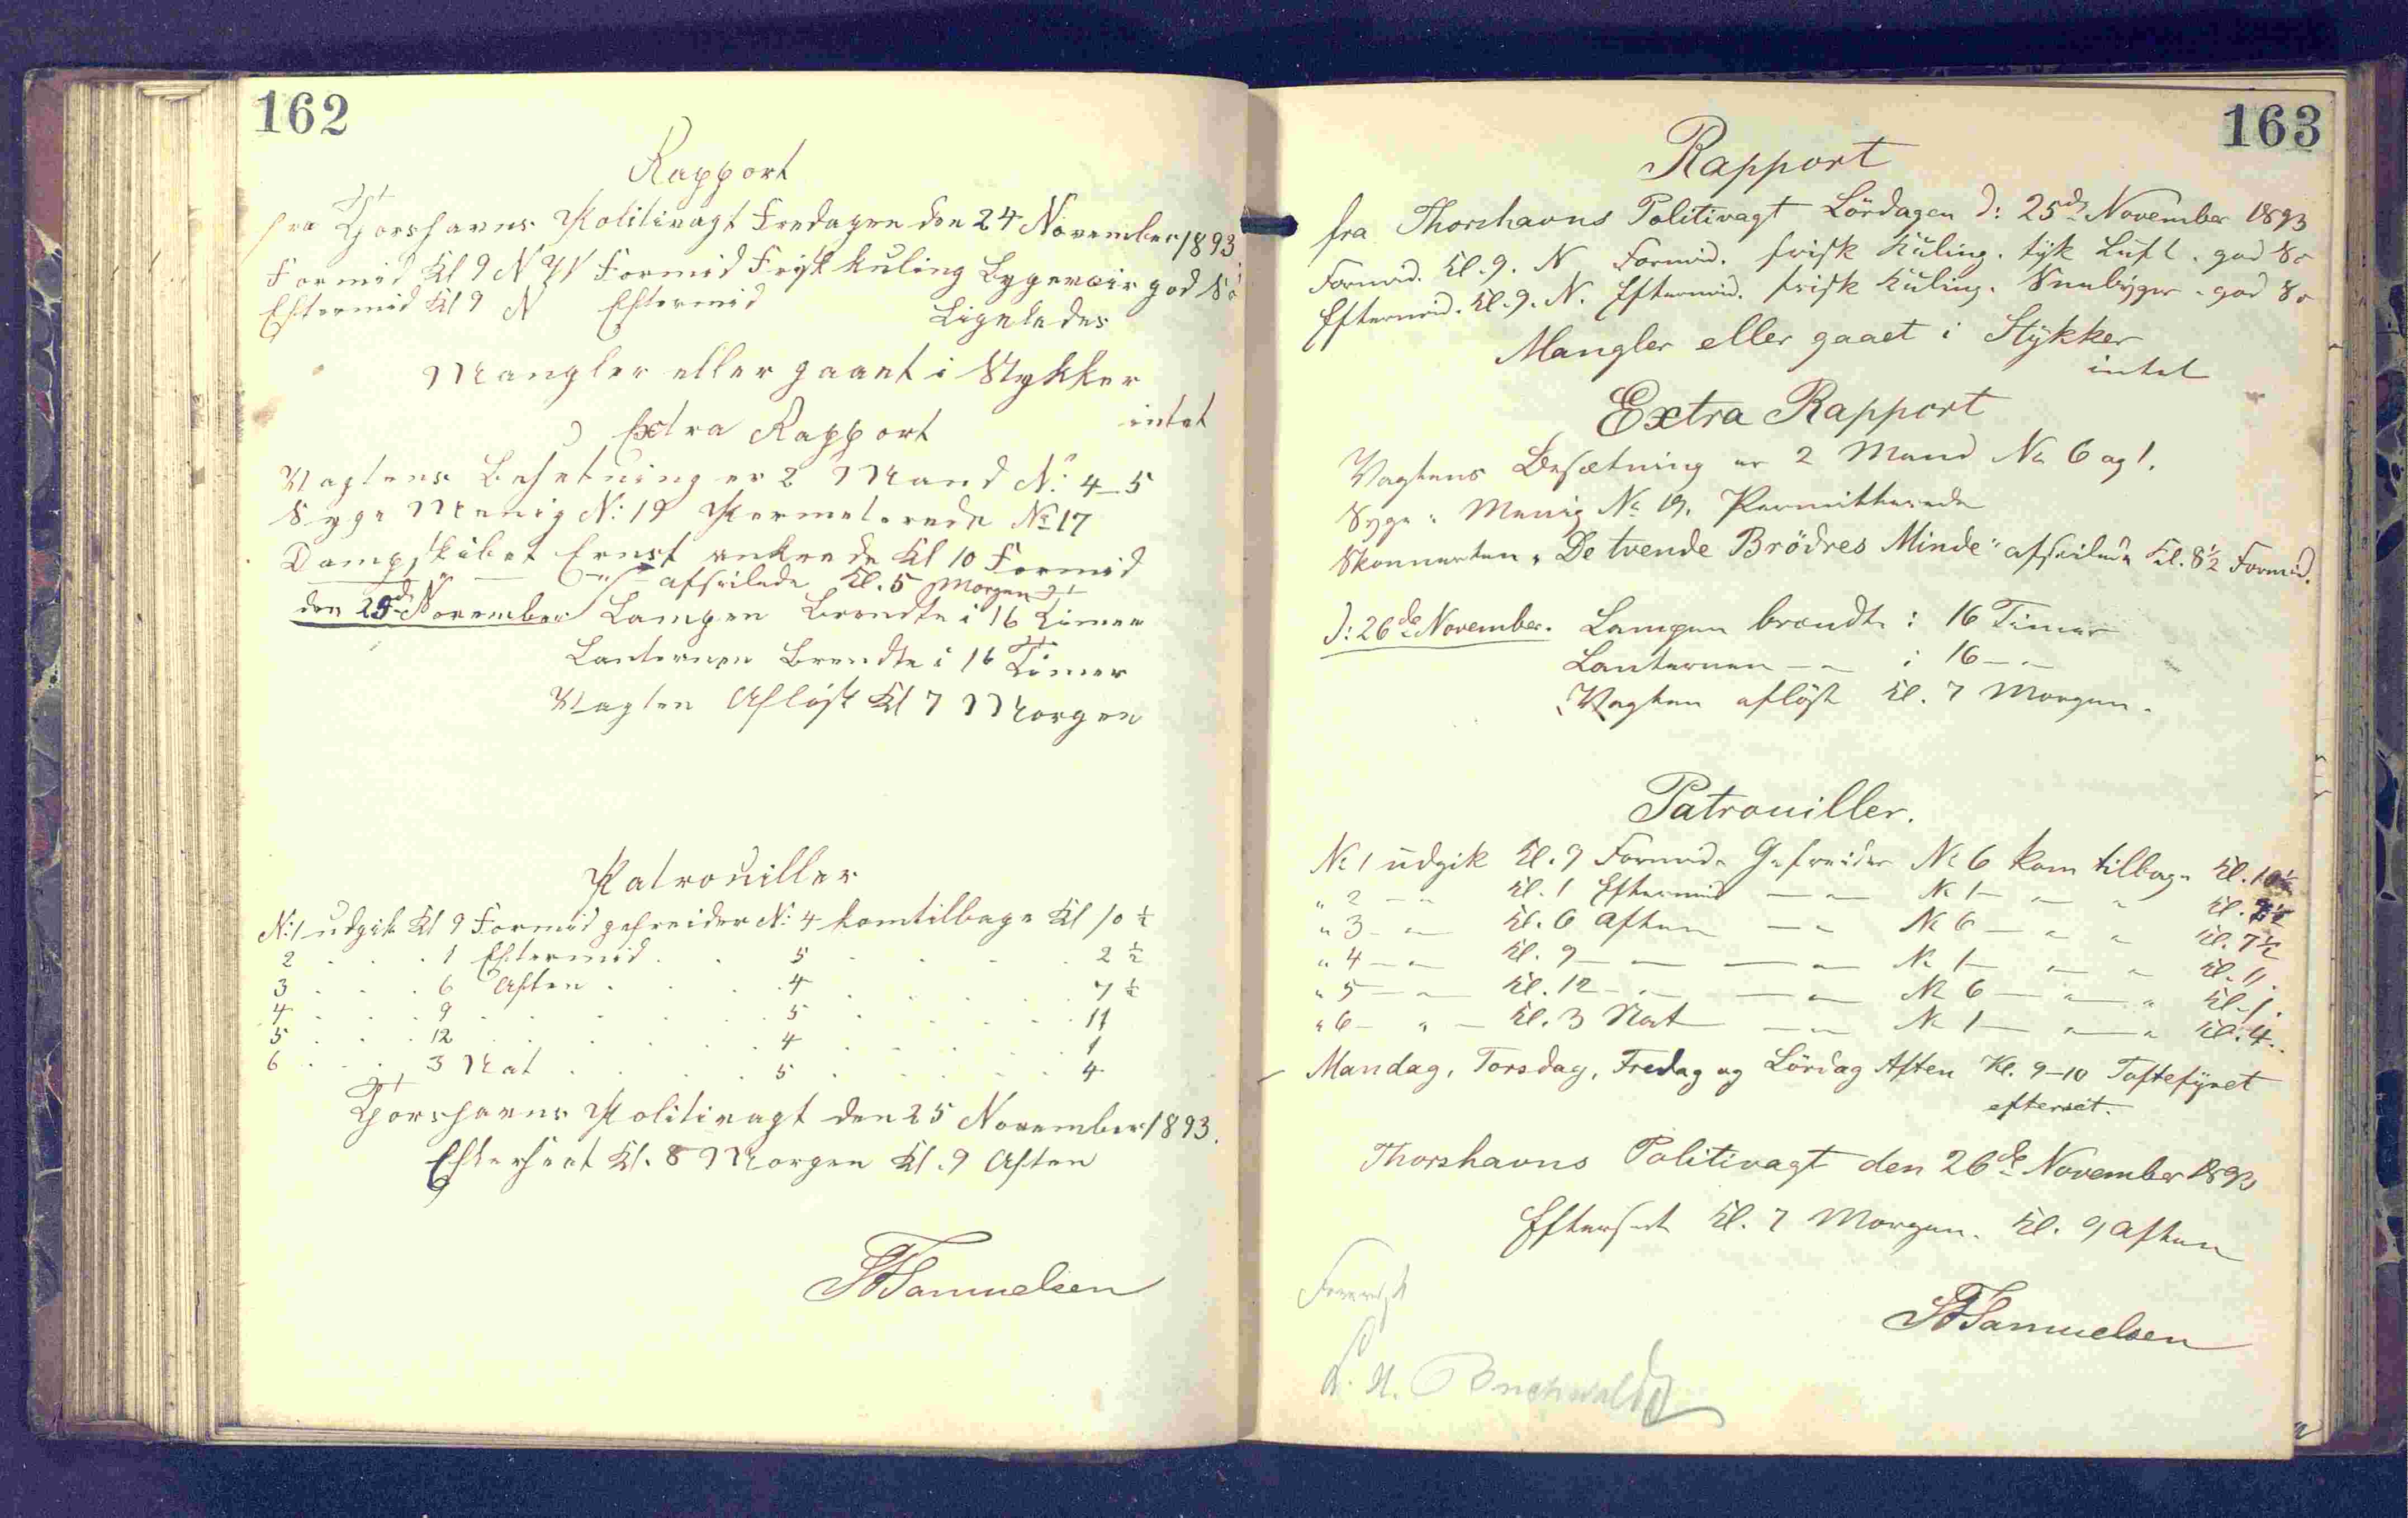 162
Rapport
fra Thorshavns Politivagt Fredagen den 24 November 1893.
Formid Kl 9 N W Formid Frisk kuling Bygeveir god Sø
Eftermid Kl 9 N Eftermid Ligeledes
Mangler eller gaaet i Stykker
intet
Extra Rapport
Vagtens Besetning er 2 Mand No: 4-5
Syge Menig No: 19 Permeterede No 17
Dampskibet Ernst ankrede Kl 10 Formid
— " — afseilede Kl. 5 Morgen
den 25d November Lampen Brendte i 16 Timer
Lanternen Brendte i 16 Timer
Vagten Afløst Kl 7 Morgen
Patrouiller
No: 1 udgik Kl 9 Formid gefreider No: 4 kom tilbage Kl 10 ½
2 . . . 1 Eftermid . . 5 . . . . . 2 ½
3 . . . 6 Aften . . . 4 . . . . . 7 ½
4 . . . 9 . . . . . 5 . . . . . 11
5 . . . 12 . . . . . 4 . . . . . 1
6 . . . 3 Nat . . . . 5 . . . . . 4
Thorshavns Politivagt den 25 November 1893.
Efterseet Kl. 8 Morgen Kl. 9 Aften
Samuelsen
163
Rapport
fra Thorshavns Politivagt Lördagen d: 25de November 1893
Formid. Kl. 9. N Formid. frisk Kuling. tyk Luft. god Sø
Eftermid. Kl. 9. N. Eftermid. frisk Kuling. Sneebyger. god Sø
Mangler eller gaaet i Stykker
intet
Extra Rapport
Vagtens Besætning er 2 Mand No 6 og 1.
Syge: Menig No 19. Permitterede
Skonnerten "De tvende Brödres Minde" afseilede Kl. 8½ Formid.
d: 26de November. Lampen brændte i 16 Timer
Lanternen — " i 16 — "
Vagten aflöst Kl. 7 Morgen.
Patrouiller.
No 1 udgik Kl. 9 Formid. Gefreider No 6 kom tilbage Kl. 10½
" 2 — " Kl. 1 Eftermid — " — No 1 — " — " Kl. 2½
" 3 — " — Kl. 6 Aften — " No 6 — " — " Kl. 7½
" 4 — " — Kl. 9 — " — " — No 1 — " — " Kl. 11.
" 5 — " — Kl. 12 — " — " — No 6 — " — " Kl. 1.
" 6 — " — Kl. 3 Nat — " — No 1 — " — " Kl. 4.
Mandag, Torsdag, Fredag og Lördag Aften Kl. 9-10 Toftefyret
efterset.
Thorshavns Politivagt den 26de November 1893
Efterseet Kl. 7 Morgen. Kl. 9 Aften
Samuelsen
Forevist
Buchwaldt